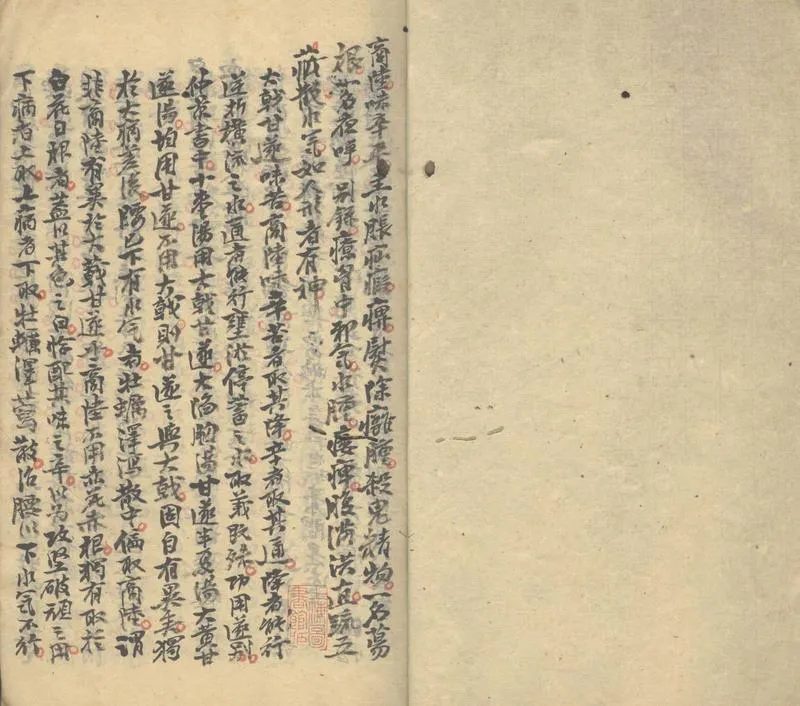 商陸味辛平主水脹疝瘕痹熨除癰腫殺鬼精物一名蕩
根一名夜呼　別錄療胸中邪氣水腫痿痹腹滿洪直疏五
臟散水氣如人形者有神
大戟甘遂味苦商陸味辛苦者取其降辛者取其通降者能行
逆折橫流之水通者能行壅淤停蓄之水取義既殊功用遂別
仲景書中十棗湯用大戟甘遂大陷胸湯甘遂半夏湯大黃甘
遂湯均用甘遂不用大戟則甘遂之與大戟固自有異矣獨
於大病差後腰已下有水氣者牡蠣澤瀉散中偏取商陸謂
非商陸有異於大戟甘遂乎商陸不用赤花赤根獨有取於
白花白根者蓋以其色之白恰配其味之辛以為攻堅破頑之用
下病者上取上病者下取牡蠣澤瀉散治腰以下水氣不行